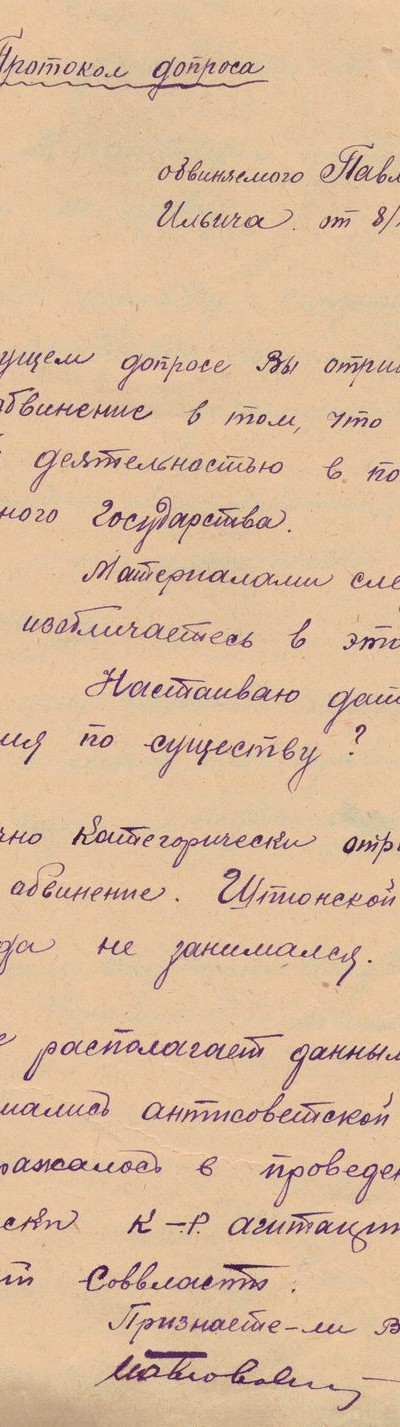 Протокол допроса
обвиняемого Павл
Ильича. от 8/
ущем допросе Вы отри
обвинение в том, что
деятельностью в по
ного Государства.
Материалами сле
изобличаетесь в это
Настаиваю дат
ия по существу?
чно категорически отр
абвинение. Шпионской
да не занимался.
располагает данным
мались антисоветской
ражалось в проведен
ски к-р. агитаци
ти Соввласти.
Признаете-ли В